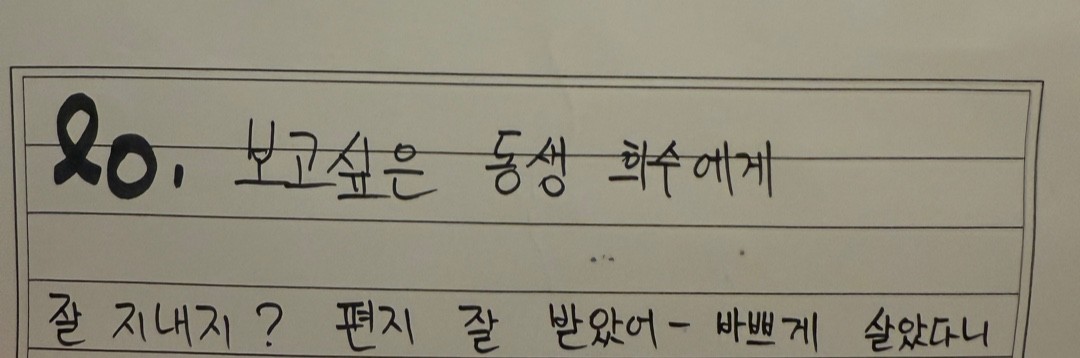 20. 보고싶은 동생 희수에게
잘 지내지? 편지 잘 받았어- 바쁘게 살았다니